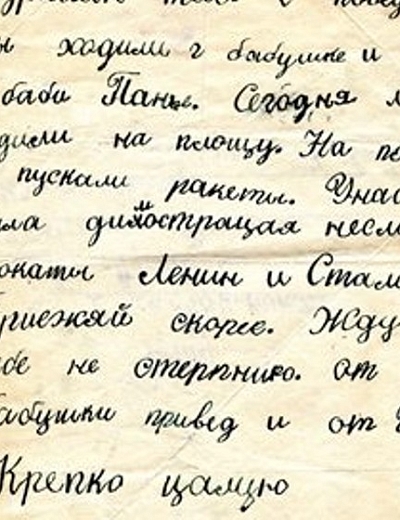 ы ходили г бабушке и
баби Пани. Сегодня
дили на площу. На по
пускали ракеты. Унас
ла димостращая несл
окаты Ленин и Стал
Приежяй скорее. Жду
бе не стерпнию. от
бабушки привед и от
Крепко цамцю